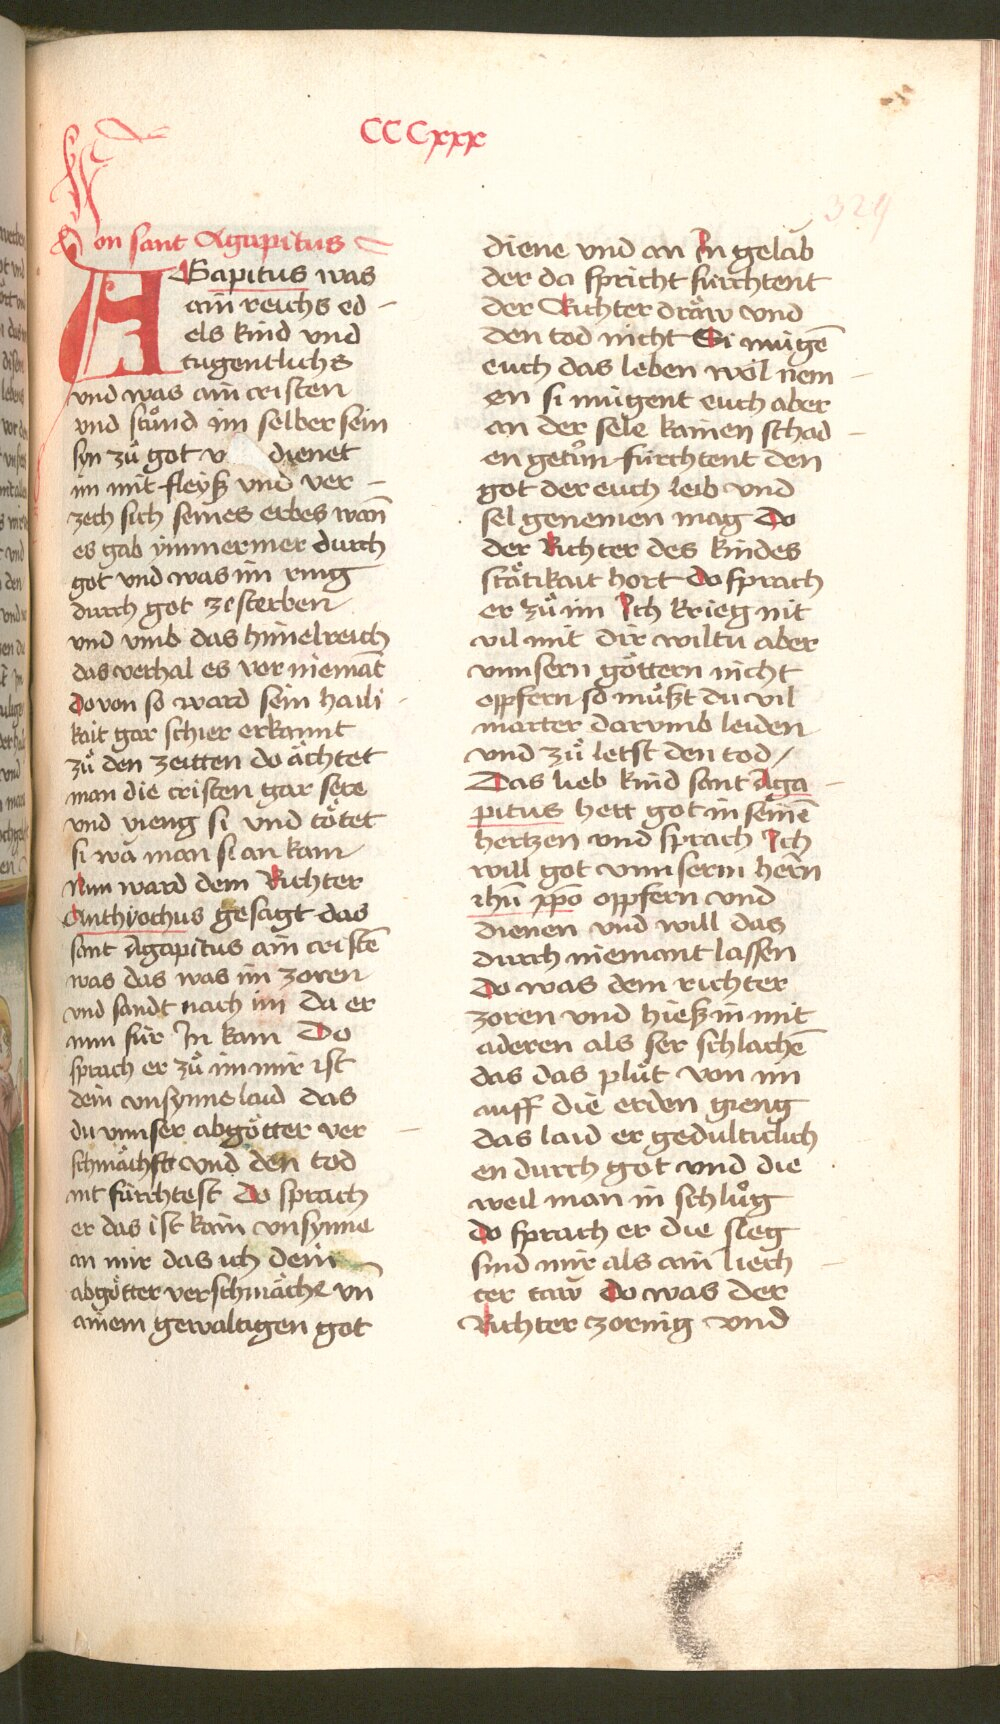 CCCxxx
329
Von sant Agapitus
AGapitus was
ain reichs ed -
els kind vnd
tugentlichs
vnd was ain cristen
vnd stůnd im selber sein
syn zů got v dienet
im mit fleyß vnd ver -
zech sich seines erbes wañ
es gab ymmermer durch
got vnd was im ring
durch got zesterben
vnd vmb das himelreich
das verhal es vor niemãt
do von so ward sein haili -
kait gar schier erkannt
zů den zeitten do ächtet
man die cristen gar sere
vnd vieng si vnd tötet
si wa man si an kam
Nun ward dem Richter
Anthyochus gesagt das
sant Agapitus ain cristẽ
was das was im zoren
vnd sandt nach im da er
nun für In kam Do
sprach er zů im mir ist
dein vnsynne laid das
du vnnser abgötter ver -
schmächst vnd den tod
nit fürchtest Do sprach
er das ist kain vnsynne
an mir das ich dein
abgötter verschmäche vñ
ainem gewaltigen got
diene vnd an In gelab
der da spricht fürchtent
der Richter dräw vnd
den tod nicht Si mügẽ
euch das leben wol nem -
en si mügent euch aber
an der sele kainen schad -
en getůn fürchtent den
got der euch leib vnd
sel genemen mag Do
der Richter des kindes
stätikait hort do sprach
er zů im Ich krieg nit
vil mit dir wiltu aber
vnnsern göttern nicht
opfern so můßt du vil
marter darvmb leiden
vnd zů letst den tod /
Das lieb kind sant Aga -
pitus hett got in seinẽ
hertzen vnd sprach Ich
will got vnnserm herñ
ihũ xp̃o opfern vnd
dienen vnd will das
durch niemant lassen
Do was dem richter
zoren vnd hieß in mit
aderen als ser schlachẽ
das das plůt von im
auff die erden gieng
das laid er gedulticlich
en durch got vnd die
weil man in schlůg
do sprach er die sleg
sind mir als ain liech -
ter taw Do was der
Richter zornig vnd